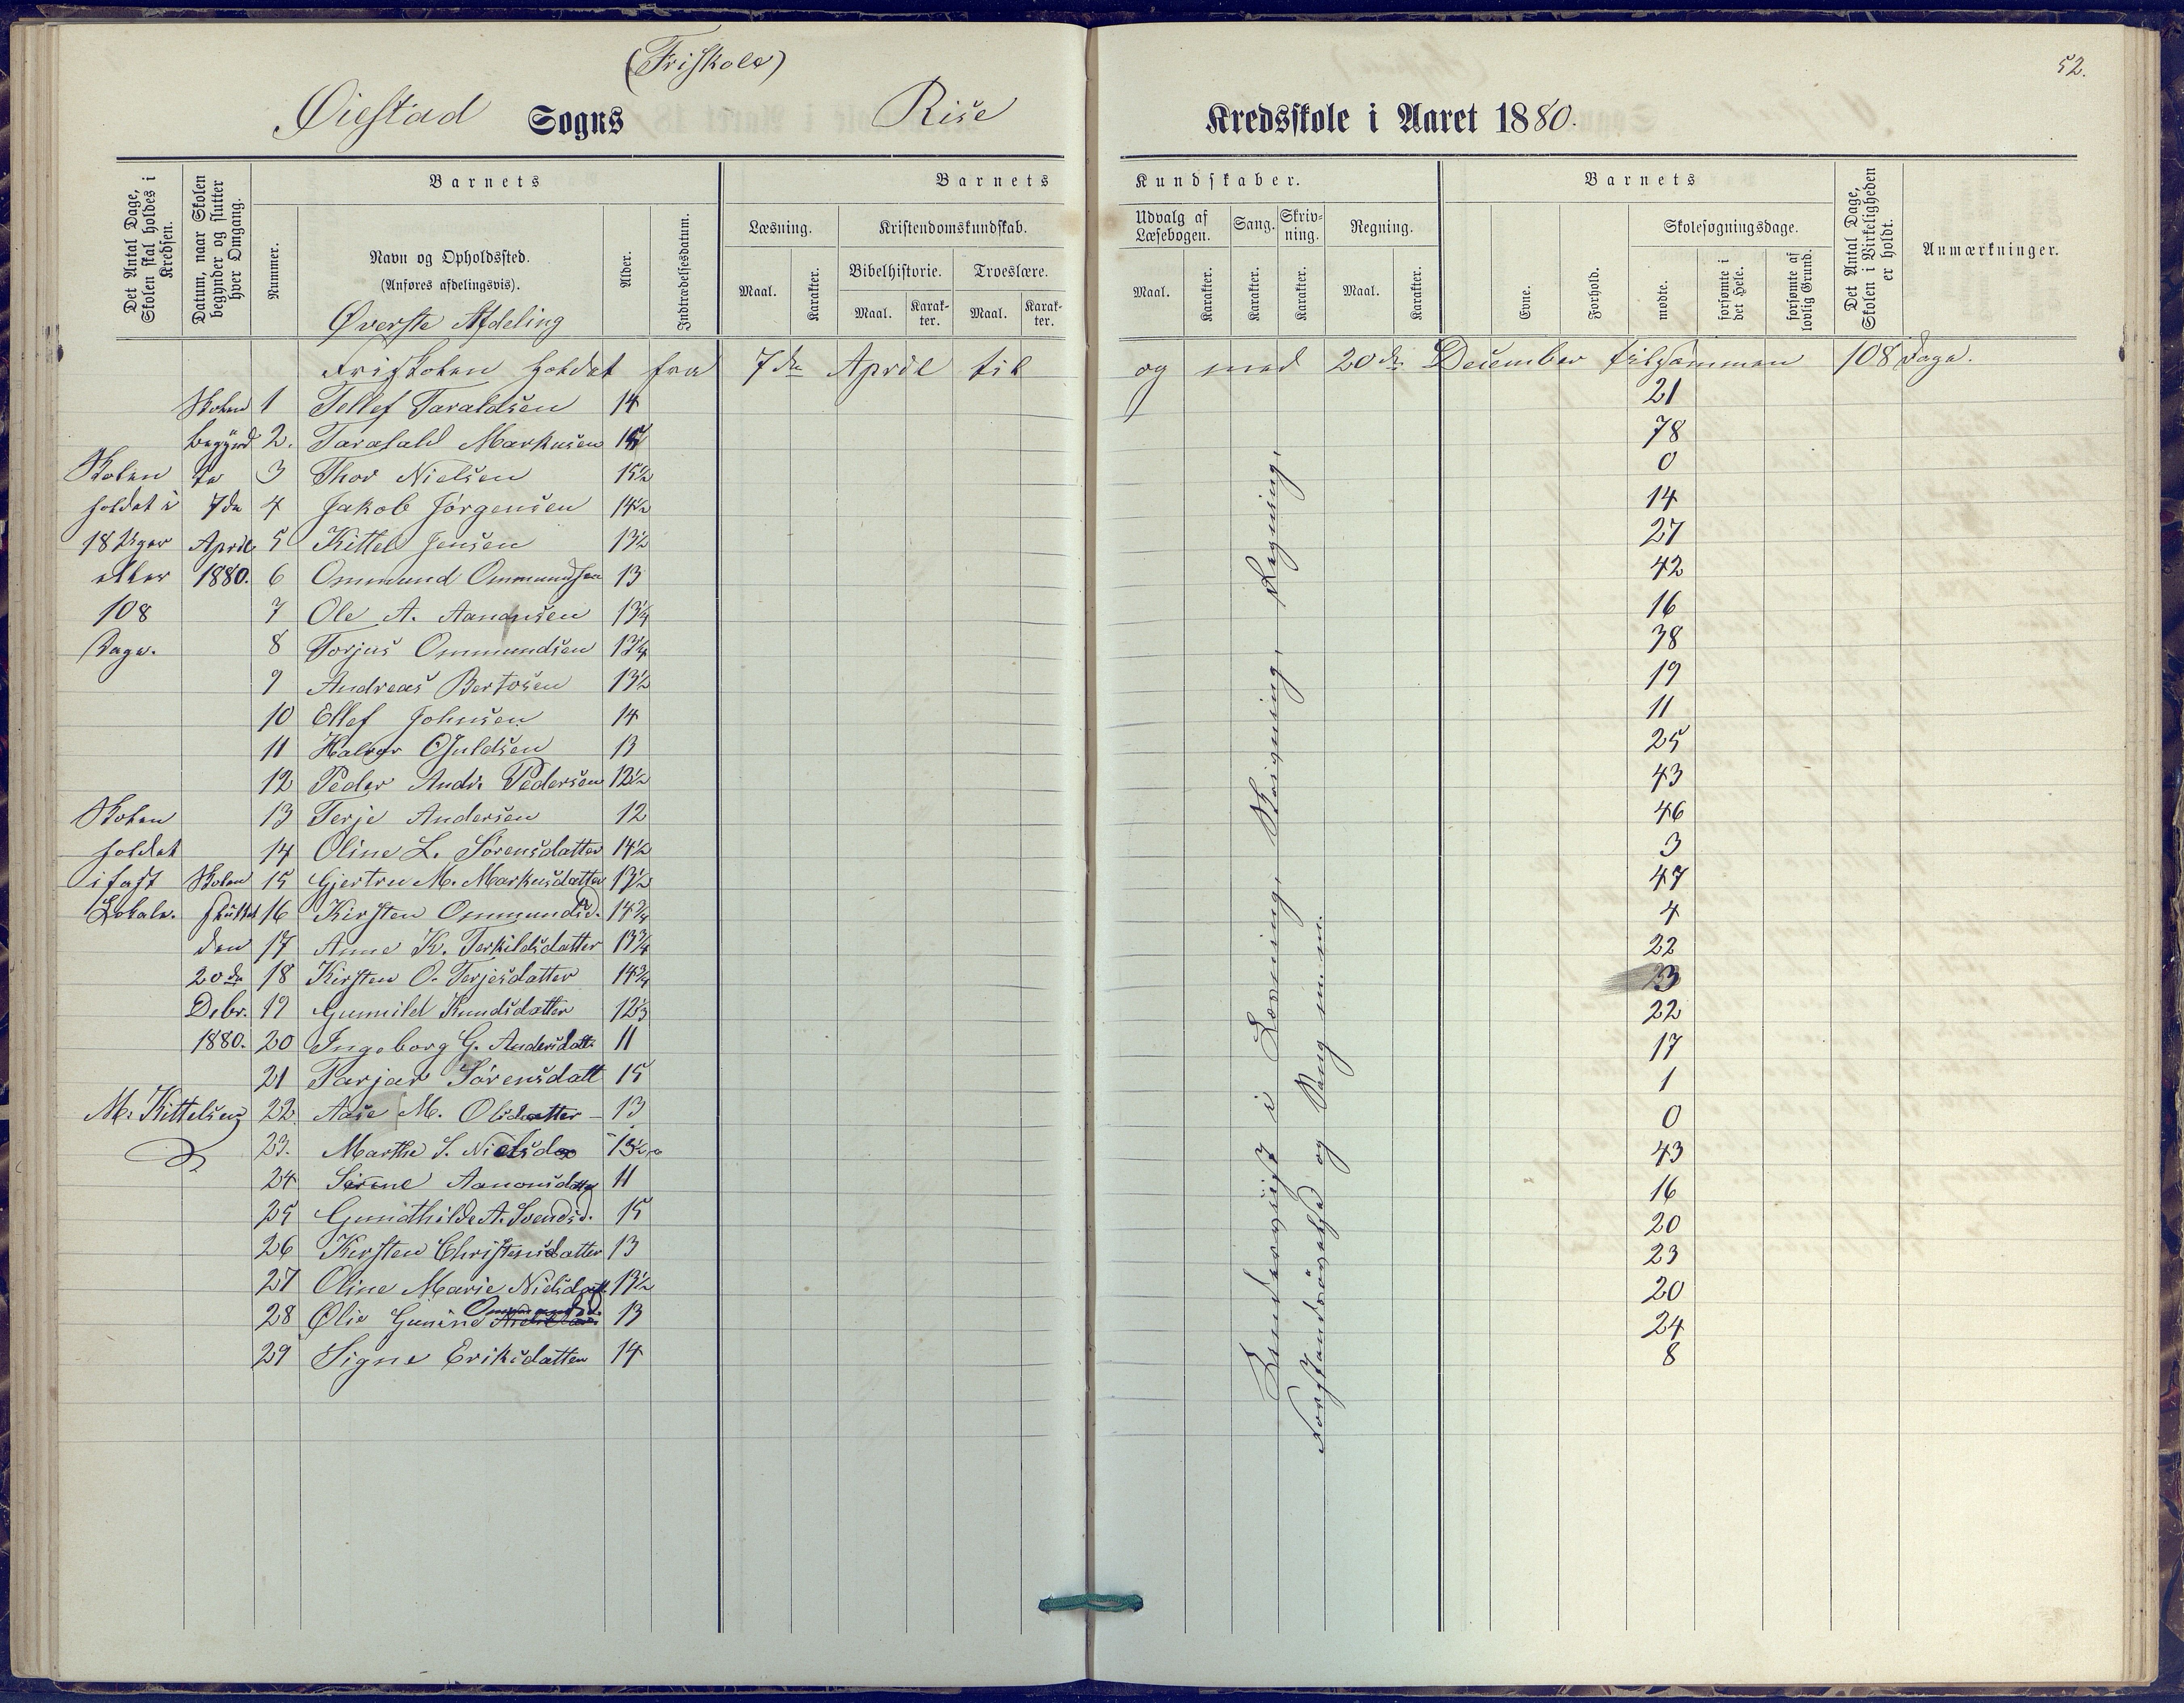 (Friskole)
52.
Øiestad Sogns Rise Kredsskole i Aaret 1880.
Det Antal Dage, Skolen skal holdes i Kredsen.
Datum, naar Skolen begynder og slutter hver Omgang.
Barnets
Nummer.
Navn og Opholdssted.
(Anføres afdelingsvis).
Øverste Afdeling
Alder.
Indtrædelsesdatum.
Barnets Kundskaber.
Læsning.
Maal.
Karakter.
Kristendomskundskab.
Bibelhistorie.
Maal.
Karakter.
Troeslære.
Maal.
Karakter.
Udvalg af Læsebogen.
Maal.
Karakter.
Sang.
Karakter.
Skrivning.
Karakter.
Regning.
Maal.
Karakter.
Barnets
Evne.
Forhold.
Skolesøgningsdage.
mødte.
forsømte i det Hele.
forsømte af lovlig Grund.
Det Antal Dage, Skolen i Virkeligheden er holdt.
Anmærkninger.
Friskolen holdet fra 7de April til og med 20de December tilsammen 108 Dage.
Skolen holdet i 18 Uger eller 108 Dage.
Skolen holdet i fast Lokale.
M. Kittelsen
Skolen begyndte 7de April 1880.
Skolen sluttet den 20de Debr. 1880.
1 Tellef Taraldsen 14 21
2. Taralald Markusen 78
3 Thor Nielsen 15½ 0
4 Jakob Jørgensen 14½ 14
5 Kittel Jensen 13½ 27
6 Ommund Ommundsen 13 42
7 Ole A. Aanonsen 13¼ 16
8 Torjus Ommundsen 38
9 Andreas Bertosen 13½ 19
10 Ellef Johnsen 14 11
11 Halvor Guldsen 13 25
12 Peder Andr. Pedersen 12½ 43
13 Terje Andersen 12 46
14 Oline L. Sørensdatter 14½ 3
15 Gjertru M. Markusdatter 13½ 47
16 Kirsten Ommundsd. 14¾ 4
17 Anne K. Terkildsdatter 13¾ 22
18 Kirsten O. Terjesdatter 14¾ 23
19 Gunnild Knudsdatter 22
20 Ingeborg G. Andersdatt. 11 17
21 Tarjer Sørensdatt 15 1
22. Aase M. Olsdatter - 13 0
23. Marthe S. Nielsd 13½ 43
24 Sirine Aanonsdatter 11 16
25 Gundhilde A. Svendsd. 15 20
26 Kirsten Christensdatter 13 23
27 Oline Marie Nielsdatt. 13½ 20
28 Olie Gunine Ommundsd. 13 24
29 Signe Eriksdatter 14 8
Underviist i Læsning, Skrivning, Regning,
Forstandsøvelse og Sang m.m.